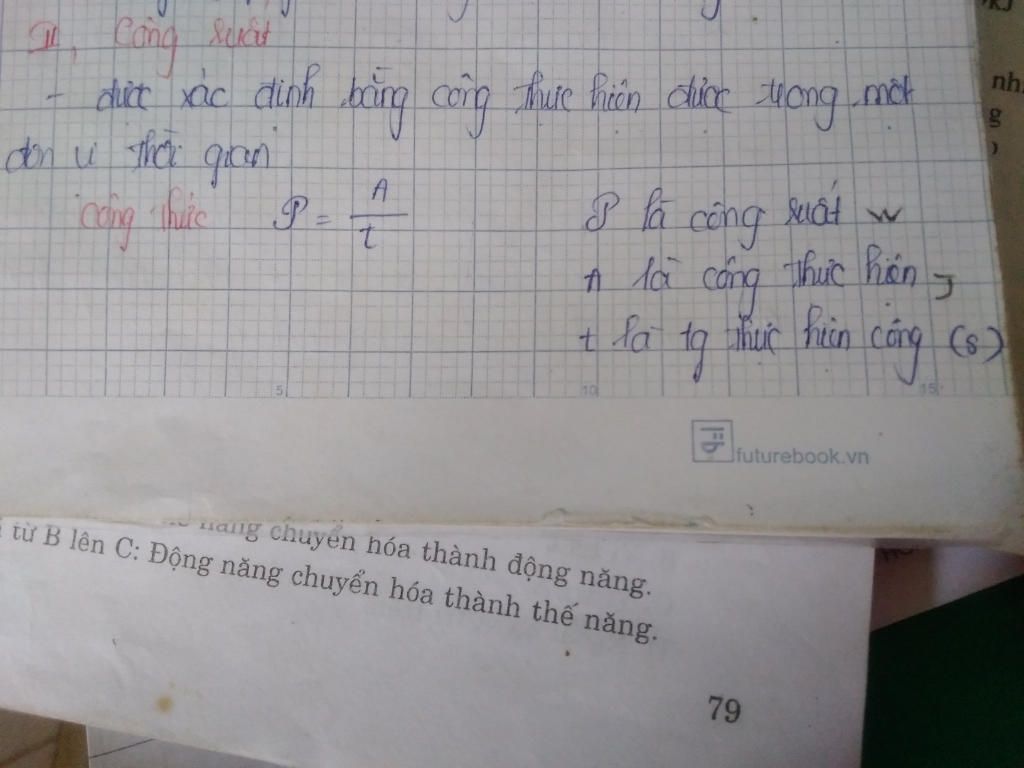 II, Công suất
- được xác định bằng công thực hiện được trong một
đơn vị thời gian
công thức P = A / t
P là công suất W
A là công thực hiện J
t là tg thực hiện công (s)
5 10 15
futurebook.vn
nh
g
)
năng chuyển hóa thành động năng.
từ B lên C: Động năng chuyển hóa thành thế năng.
79